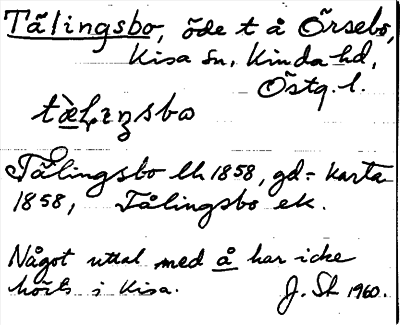 Tälingsbo, öde t å Örsebo,
Kisa sn, Kinda hd,
Östg. l.
tæ̀lıŋsbo
Tålingsbo lk 1858, gd= karta
1858, Tålingsbo ek.
Något uttal med å har icke
hörts i Kisa. J. Sk 1960.